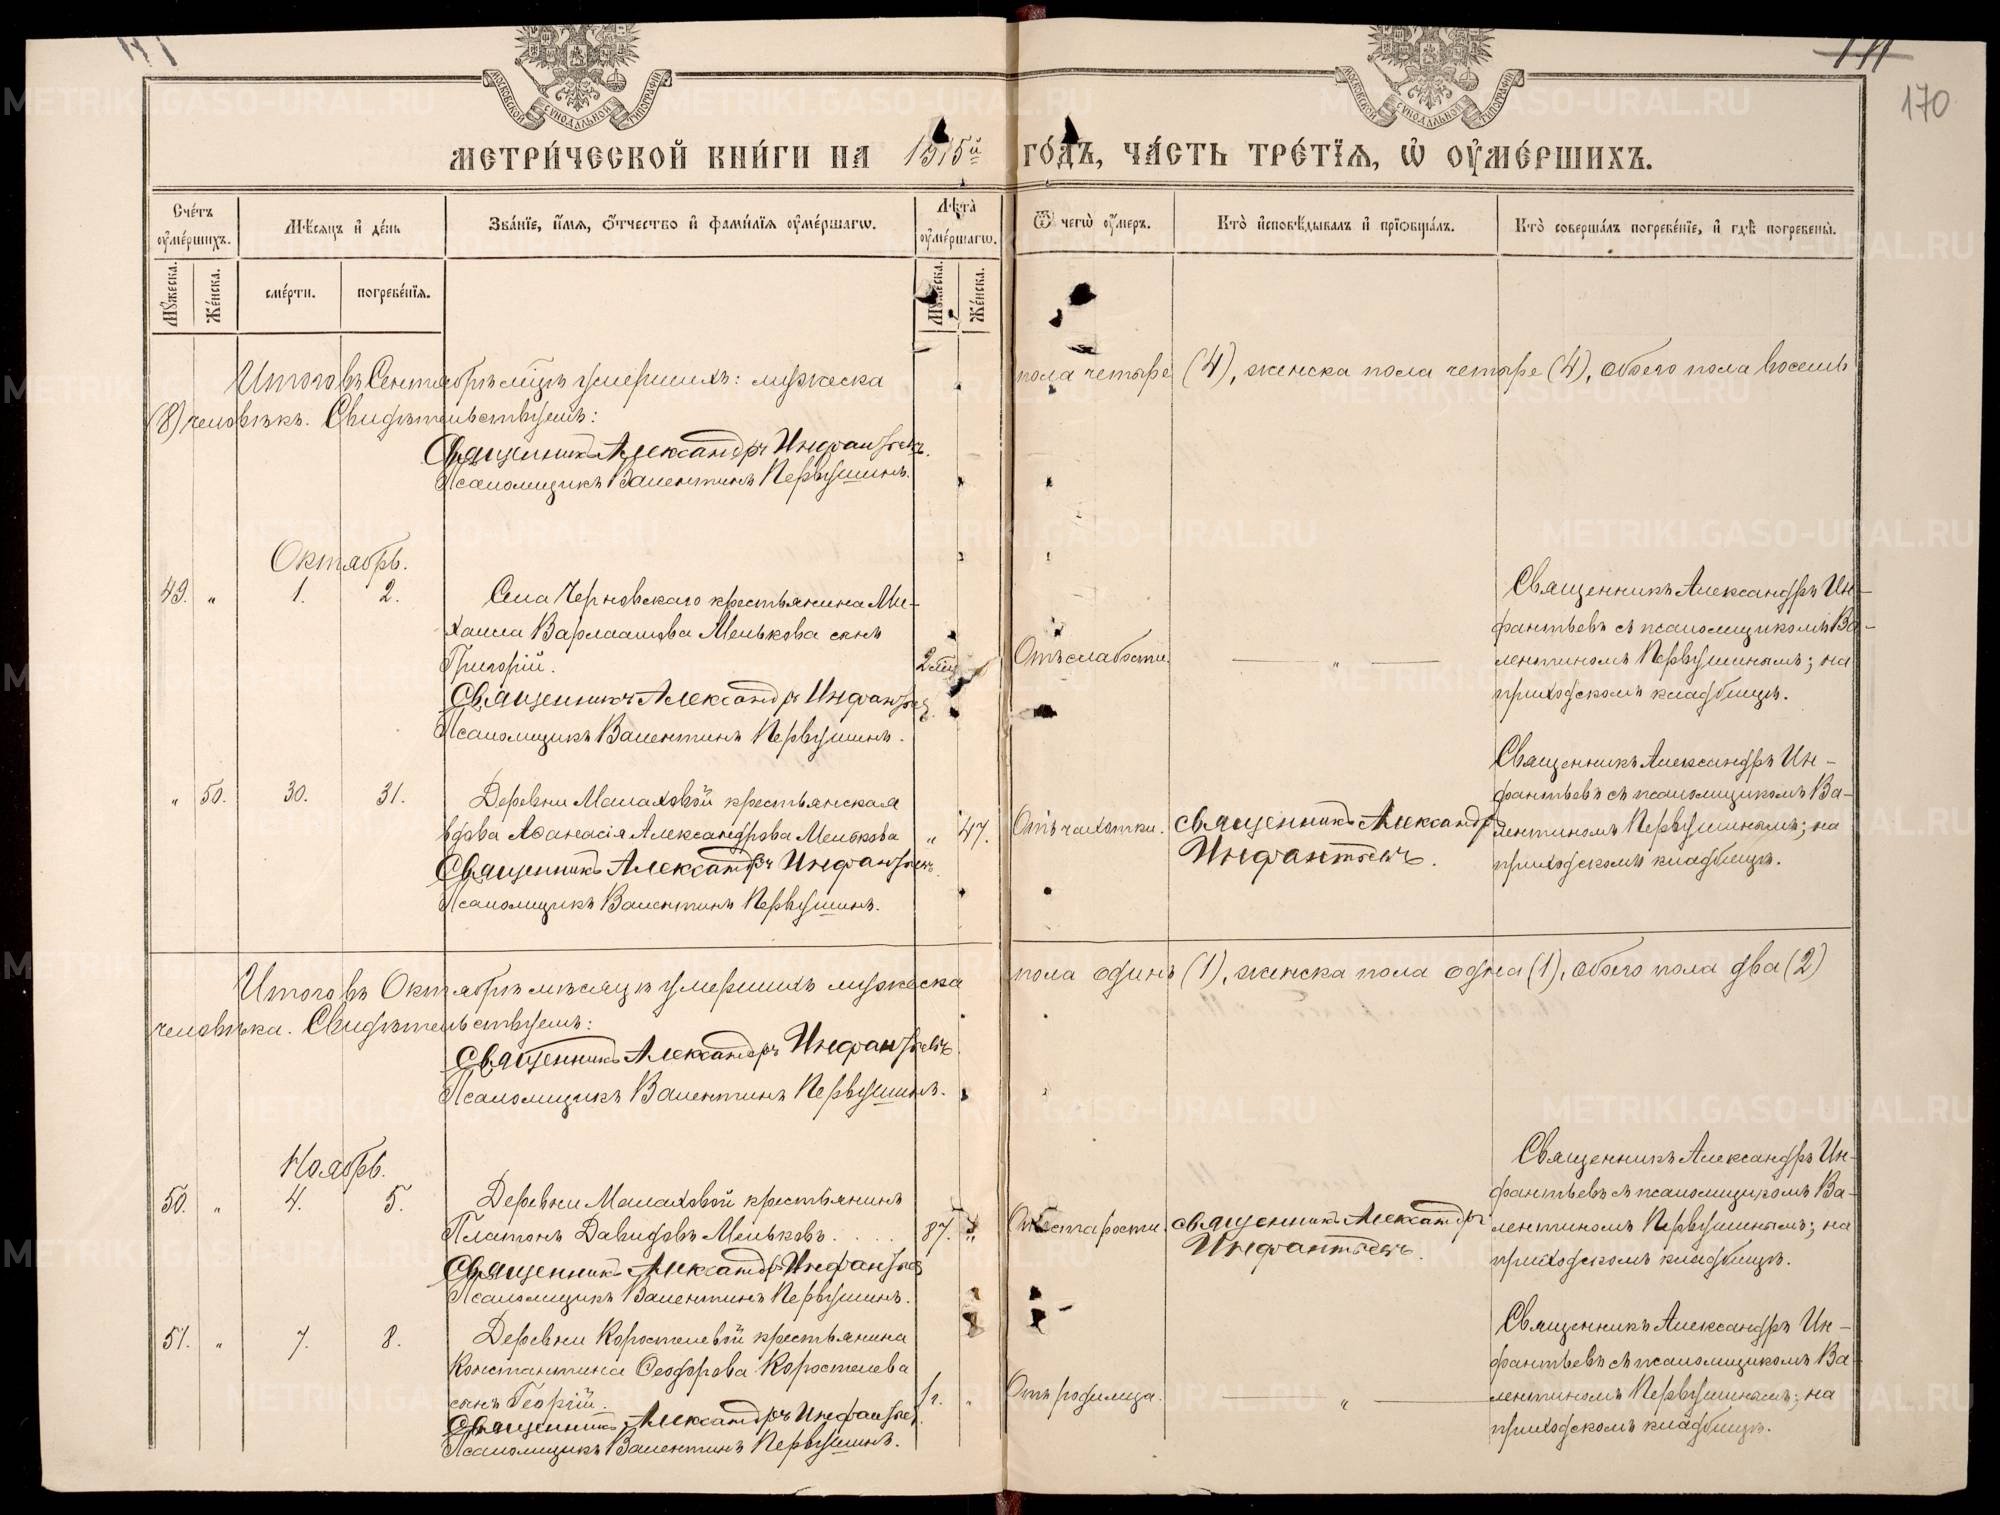 170
МОСКОВСКОЙ СѴНОДАЛЬНОЙ ТИПОГРАФІИ
МОСКОВСКОЙ СѴНОДАЛЬНОЙ ТИПОГРАФІИ
МЕТРИ́ЧЕСКОЙ КНИ́ГИ НА 1915й ГО́ДЪ, ЧА́СТЬ ТРЕ́ТІѦ, Ѡ ОУМЕ́РШИХЪ.
Сче́тъ оумершихъ.
Мѣсяцъ и де́нь
Зва́ніе, и́мя, ѻтчество и фами́лія оуме́ршагѡ.
Лѣта оуме́ршагѡ.
Ѿ чегѡ оу́меръ.
Кто̀ исповѣ́дывалъ и пріѡбща́лъ.
Кто̀ соверша́лъ погребе́ніе, и гдѣ̀ погребены̀.
Мꙋжеска.
Же́нска.
сме́рти.
погребе́нія.
Мꙋжеска.
Же́нска.
Итого въ Сентябрѣ мѣсяцѣ умершихъ: мужеска пола четыре (4), женска пола четыре (4), обоего пола восемь
(8) человѣкъ. Свидѣтельствуемъ:
Священникъ Александръ Инфантьевъ.
Псаломщикъ Валентинъ Первушинъ.
Октябрь.
49. „ 1. 2. Села Черновскаго крестьянина Ми-
хаила Варлаамова Менькова сынъ
Григорій. 2 мѣс. Отъ слабости. — „ —
Священникъ Александръ Инфантьев
Псаломщикъ Валентинъ Первушинъ.
Священникъ Александръ Ин-
фантьевъ съ псаломщикомъ Ва-
лентиномъ Первушинымъ; на
приходскомъ кладбищѣ.
„ 50. 30. 31. Деревни Малаховой крестьянская
вдова Аѳанасія Александрова Менькова „ 47. Отъ чахотки.
Священникъ Александръ Инфантьевъ.
Псаломщикъ Валентинъ Первушинъ.
Священникъ Александръ
Инфантьевъ.
Священникъ Александръ Ин-
фантьевъ съ псаломщикомъ Ва-
лентиномъ Первушинымъ; на
приходскомъ кладбищѣ.
Итого въ Октябрѣ мѣсяцѣ умершихъ мужеска пола одинъ (1), женска пола одна (1), обоего пола два (2)
человѣка. Свидѣтельствуемъ:
Священникъ Александръ Инфантьевъ.
Псаломщикъ Валентинъ Первушинъ.
Ноябрь.
50. „ 4. 5. Деревни Малаховой крестьянинъ
Платонъ Давидовъ Меньковъ. . . . . 87. „ Отъ старости.
Священникъ Александръ Инфантьев
Псаломщикъ Валентинъ Первушинъ.
Священникъ Александръ
Инфантьевъ.
Священникъ Александръ Ин-
фантьевъ съ псаломщикомъ Ва-
лентиномъ Первушинымъ; на
приходскомъ кладбищѣ.
51. „ 7. 8. Деревни Коростелевой крестьянина
Константина Ѳеодорова Коростелева
сынъ Георгій. 1 г. „ Отъ родимца. — „ —
Священникъ Александръ Инфантьев.
Псаломщикъ Валентинъ Первушинъ.
Священникъ Александръ Ин-
фантьевъ съ псаломщикомъ Ва-
лентиномъ Первушинымъ; на
приходскомъ кладбищѣ.
METRIKI.GASO-URAL.RU